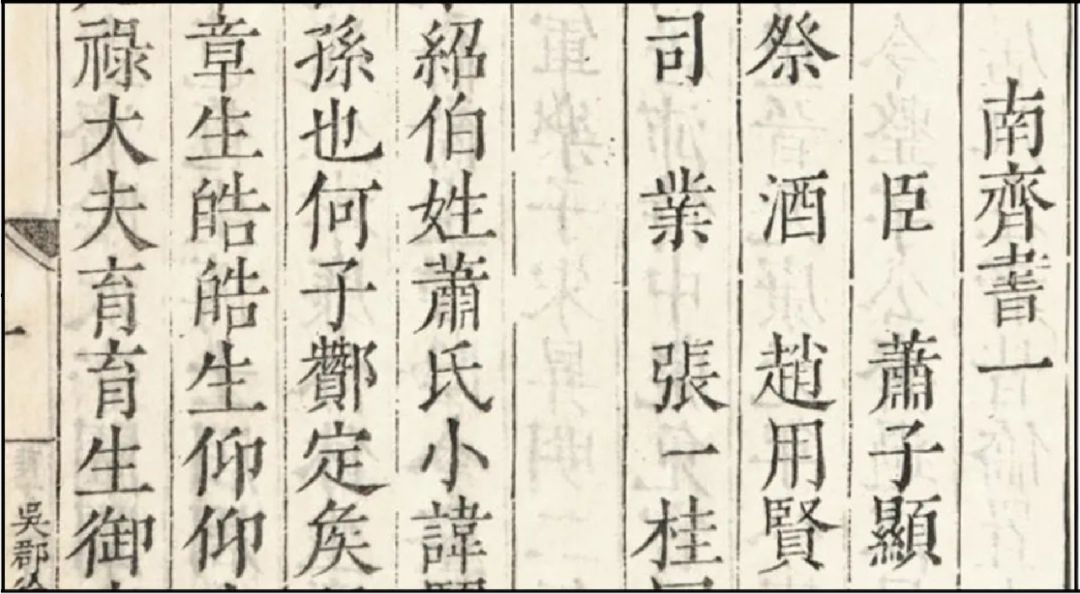 南齊書一
臣蕭子顯
祭酒趙用賢
司業張一桂
紹伯姓蕭氏小諱
孫也何子酇定矦
章生皓皓生仰仰
祿大夫育育生御
一
吳郡徐